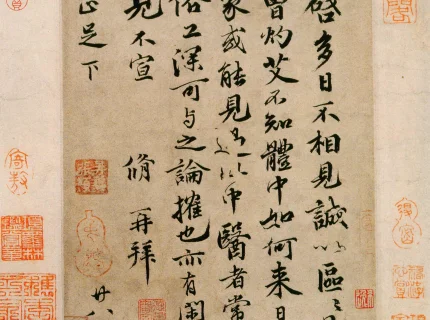 啓多日不相見誠以區區
曾灼艾不知體中如何来日
家或能見過此中醫者常
俗工深可与之論搉也亦有閑
見不宣
脩再拜
廿八
正足下